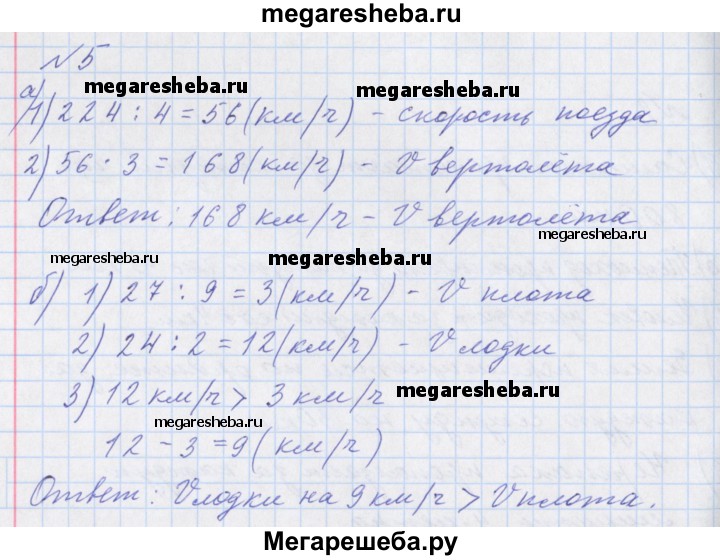 megaresheba.ru
№ 5
megaresheba.ru
megaresheba.ru
а)
1) 224 : 4 = 56 (км/ч) - скорость поезда
2) 56 · 3 = 168 (км/ч) - V вертолёта
Ответ: 168 км/ч - V вертолёта
megaresheba.ru
megaresheba.ru
megaresheba.ru
б) 1) 27 : 9 = 3 (км/ч) - V плота
2) 24 : 2 = 12 (км/ч) - V лодки
megaresheba.ru
3) 12 км/ч > 3 км/ч
megaresheba.ru
megaresheba.ru
12 - 3 = 9 (км/ч)
Ответ: V лодки на 9 км/ч > V плота.
Мегарешеба.ру